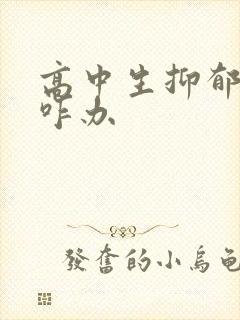 高中生抑郁
咋办
發奮的小烏龜